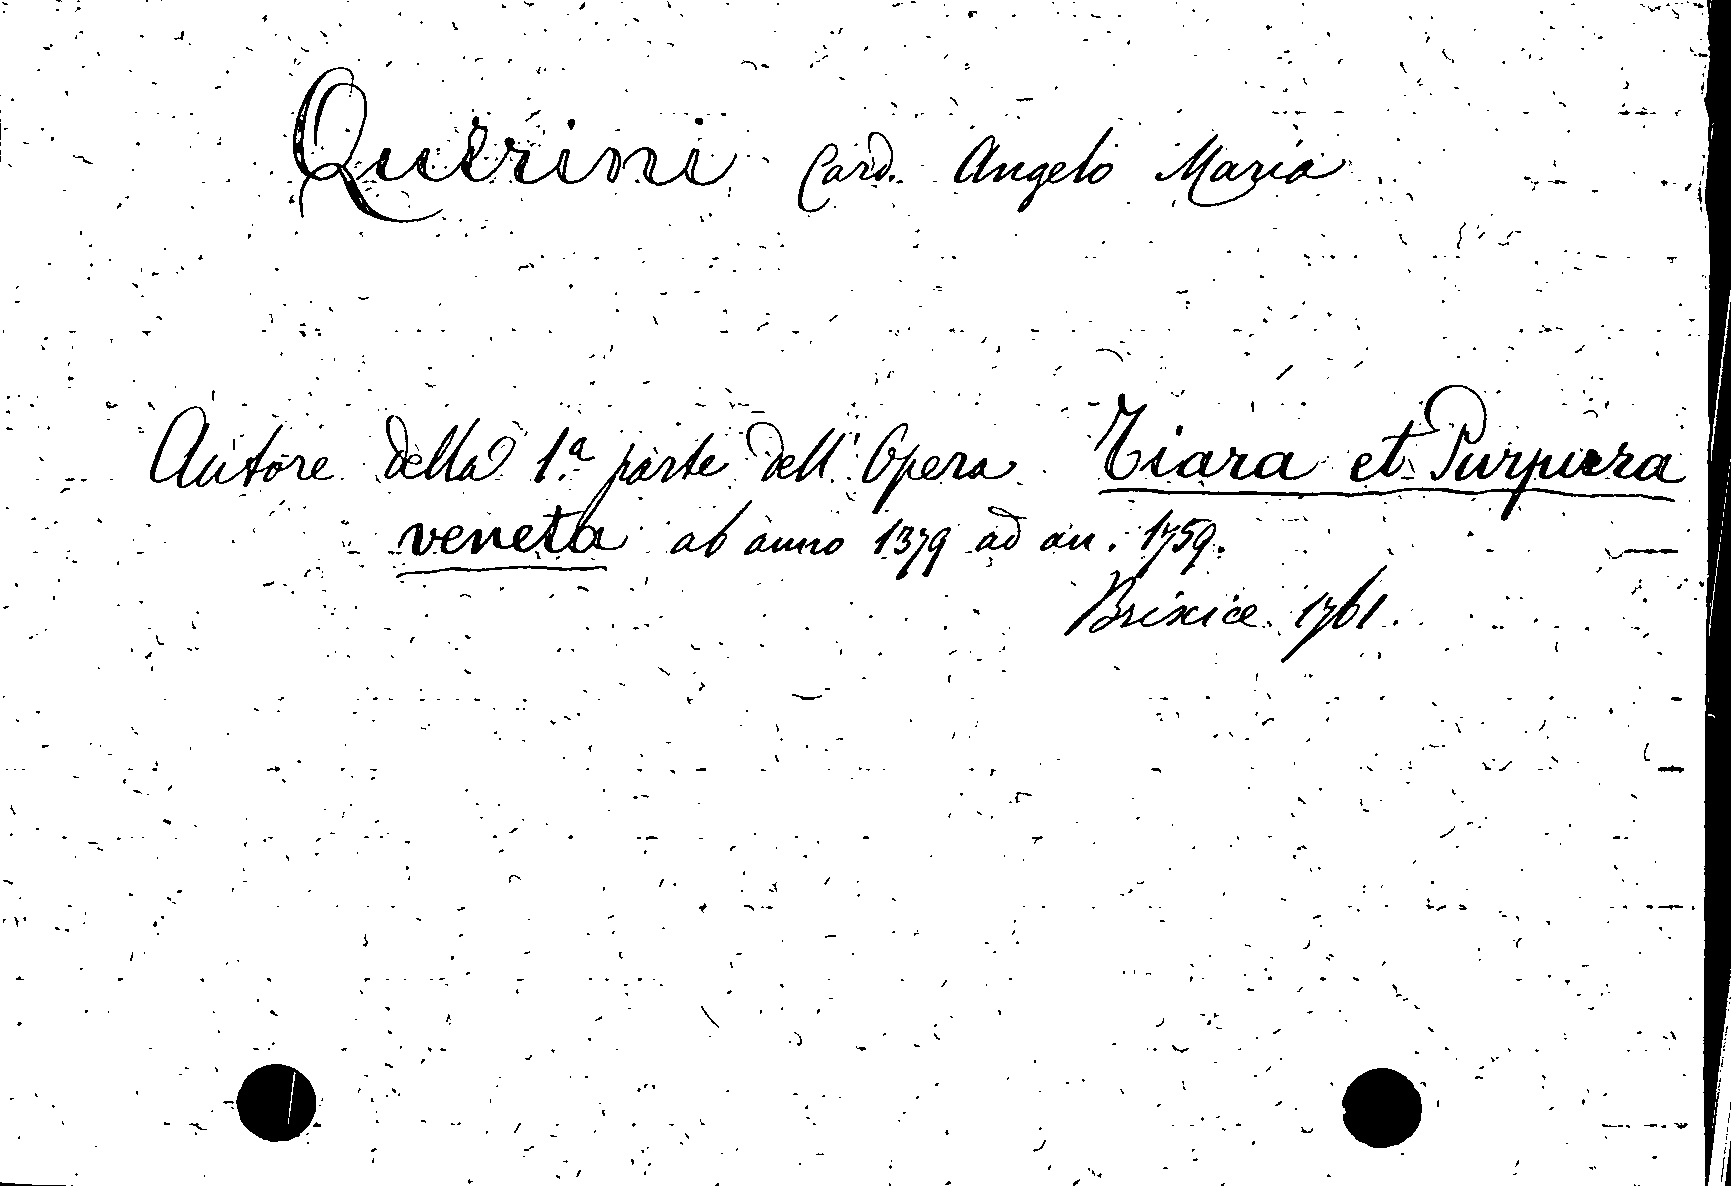 Querini Card. Angelo Maria
Autore della 1.ª parte dell'Opera Tiara et Purpura
veneta ab anno 1379 ad an. 1759.
Brixiæ 1761.